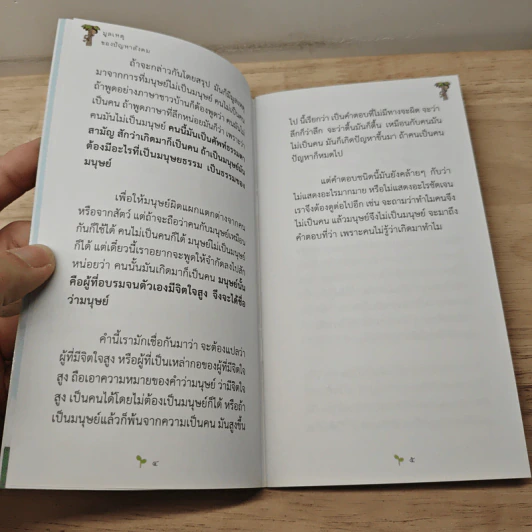 มูลเหตุ
ของปัญหาสังคม
ถ้าจะกล่าวกันโดยสรุป มันก็มีมูลเหตุ
มาจากการที่มนุษย์ไม่เป็นมนุษย์ คนไม่เป็นคน
ถ้าพูดอย่างภาษาชาวบ้านก็ต้องพูดว่า คนมันไม่
เป็นคน ถ้าพูดภาษาที่ลึกหน่อยมันก็ว่า เพราะว่า
คนมันไม่เป็นมนุษย์ คนนี้มันเป็นศัพท์ธรรมดา
สามัญ สักว่าเกิดมาก็เป็นคน ถ้าเป็นมนุษย์มัน
ต้องมีอะไรที่เป็นมนุษยธรรม เป็นธรรมของ
มนุษย์
เพื่อให้มนุษย์ผิดแผกแตกต่างจากคน
หรือจากสัตว์ แต่ถ้าจะถือว่าคนกับมนุษย์เหมือน
กันก็ใช้ได้ คนไม่เป็นคนก็ได้ มนุษย์ไม่เป็นมนุษย์
ก็ได้ แต่เดี๋ยวนี้เราอยากจะพูดให้จำกัดลงไปสัก
หน่อยว่า คนนั้นมันเกิดมาก็เป็นคน มนุษย์นั้น
คือผู้ที่อบรมจนตัวเองมีจิตใจสูง จึงจะได้ชื่อ
ว่ามนุษย์
คำนี้เรามักเชื่อกันมาว่า จะต้องแปลว่า
ผู้ที่มีจิตใจสูง หรือผู้ที่เป็นเหล่ากอของผู้ที่มีจิตใจ
สูง ถือเอาความหมายของคำว่ามนุษย์ ว่ามีจิตใจ
สูง เป็นคนได้โดยไม่ต้องเป็นมนุษย์ก็ได้ หรือถ้า
เป็นมนุษย์แล้วก็พ้นจากความเป็นคน มันสูงขึ้น
๔
ไป นี้เรียกว่า เป็นคำตอบที่ไม่มีทางจะผิด จะว่า
ลึกก็ว่าลึก จะว่าตื้นมันก็ตื้น เหมือนกับคนมัน
ไม่เป็นคน มันก็เกิดปัญหาขึ้นมา ถ้าคนเป็นคน
ปัญหาก็หมดไป
แต่คำตอบชนิดนี้มันยังคล้ายๆ กับว่า
ไม่แสดงอะไรมากมาย หรือไม่แสดงอะไรชัดเจน
เราจึงต้องดูต่อไปอีก เช่น จะถามว่าทำไมคนจึง
ไม่เป็นคน แล้วมนุษย์จึงไม่เป็นมนุษย์ จะมาถึง
คำตอบที่ว่า เพราะคนไม่รู้ว่าเกิดมาทำไม
๕